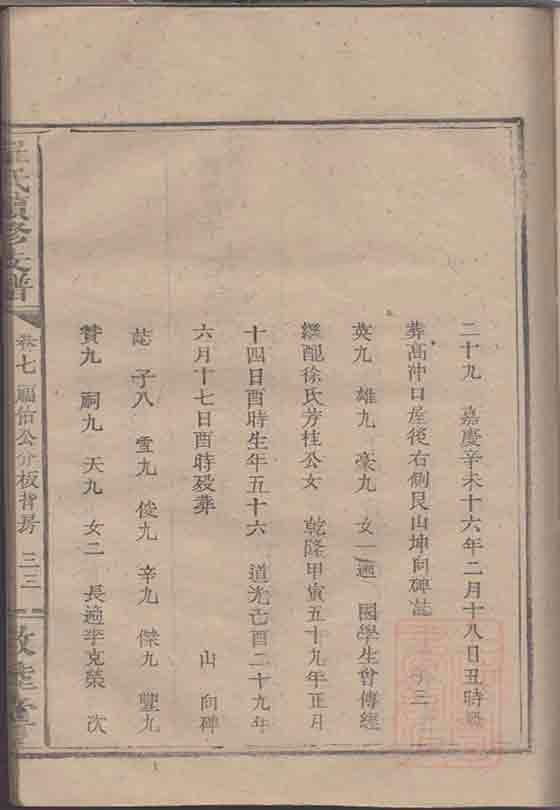 二十九 嘉慶辛未十六年二月十八日丑時歿
葬高沖口屋後右側艮山坤向碑誌 子三
英九 雄九 豪九 女一適 國學生曾傳經
繼配徐氏芳桂公女 乾隆甲寅五十九年正月
十四日酉時生年五十六 道光己酉二十九年
六月十七日酉時歿葬 山 向碑
誌 子八 雪九 俊九 辛九 傑九 璽九
贊九 嗣九 天九 女二 長適李克榮 次
氏續修支譜
卷七 福佑公分板背房 三三
敦睦堂